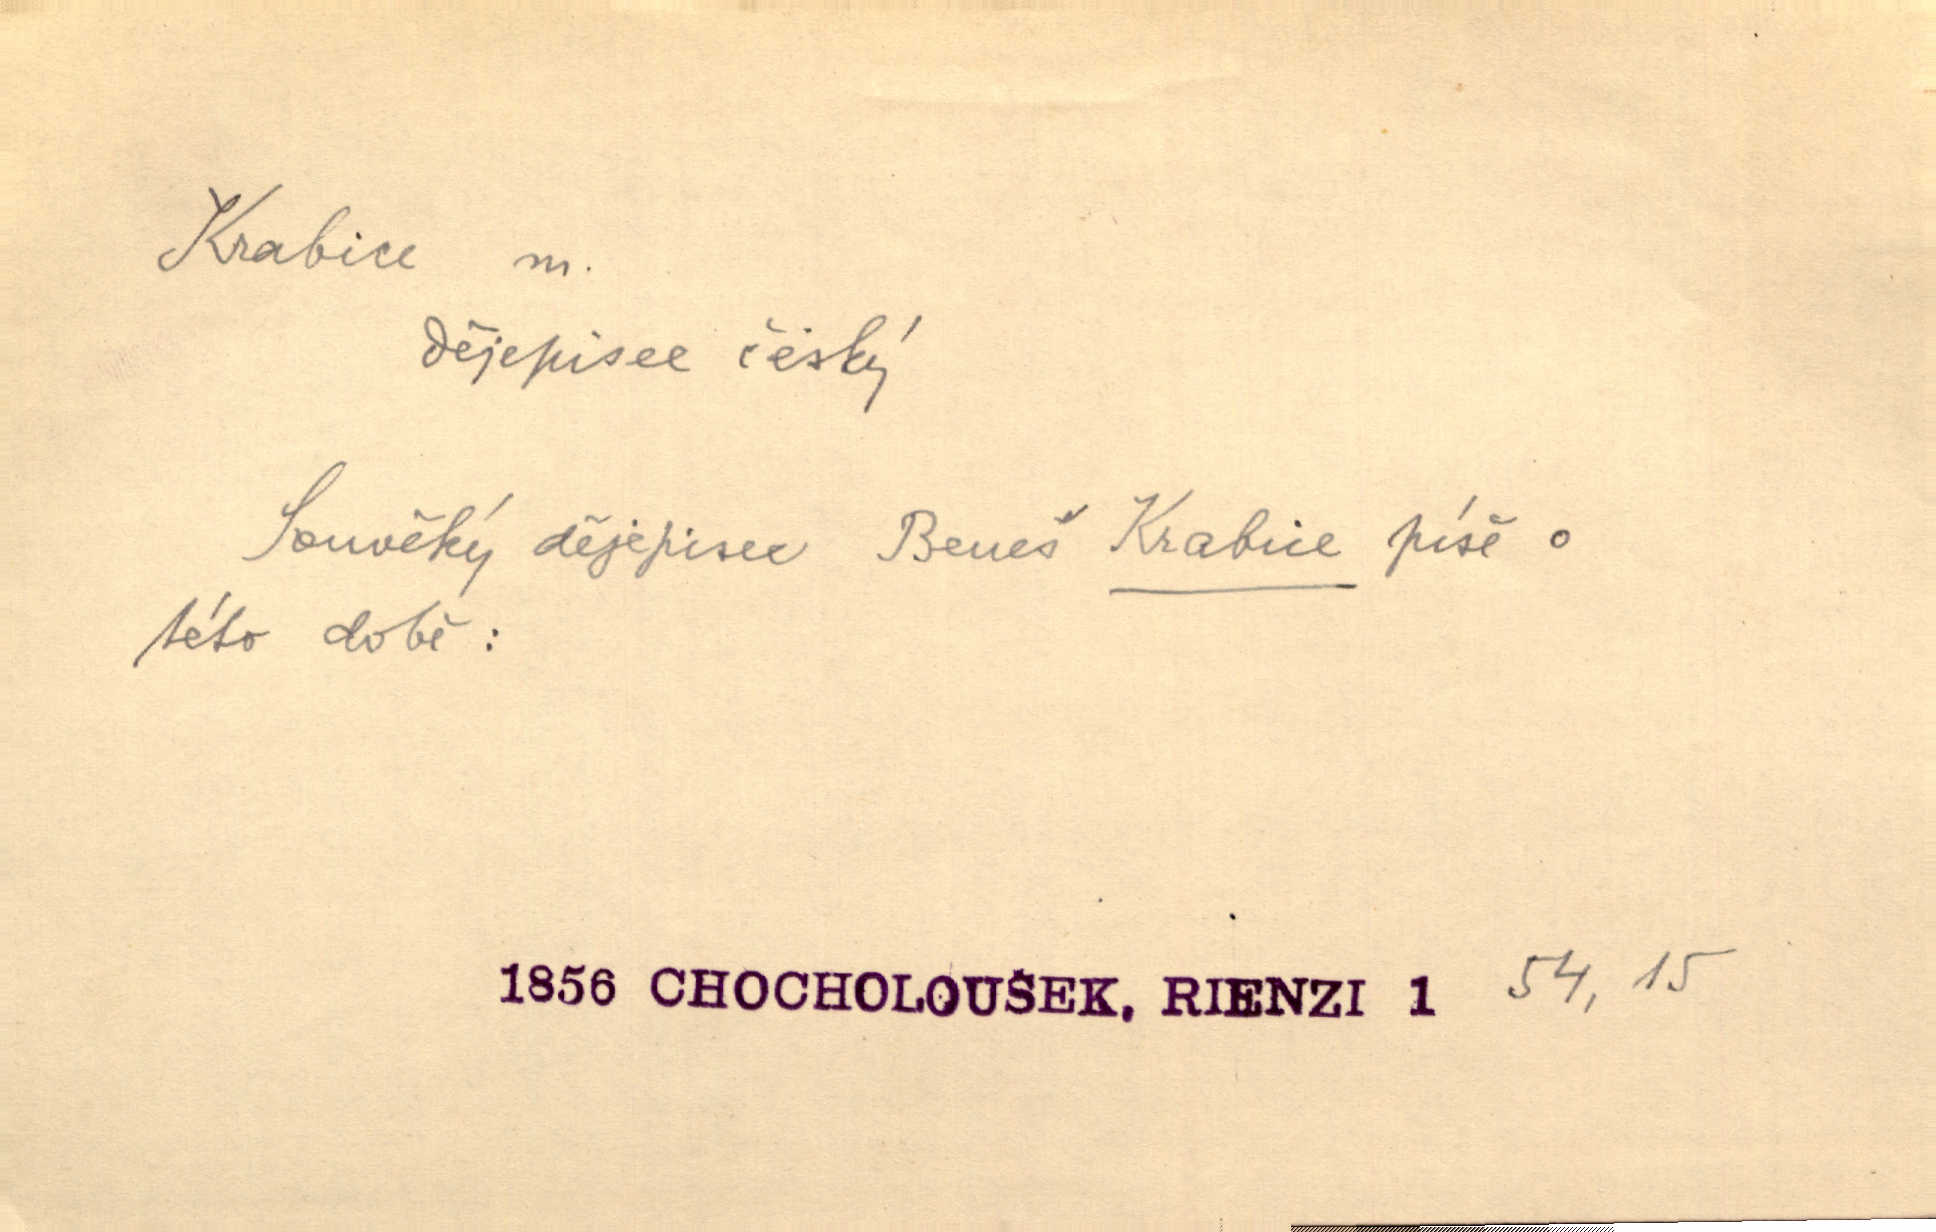 Krabice m.
dějepisec český
Souvěký dějepisec Beneš Krabice píše o
této době:
1856 CHOCHOLOUŠEK, RIENZI 1 54, 15